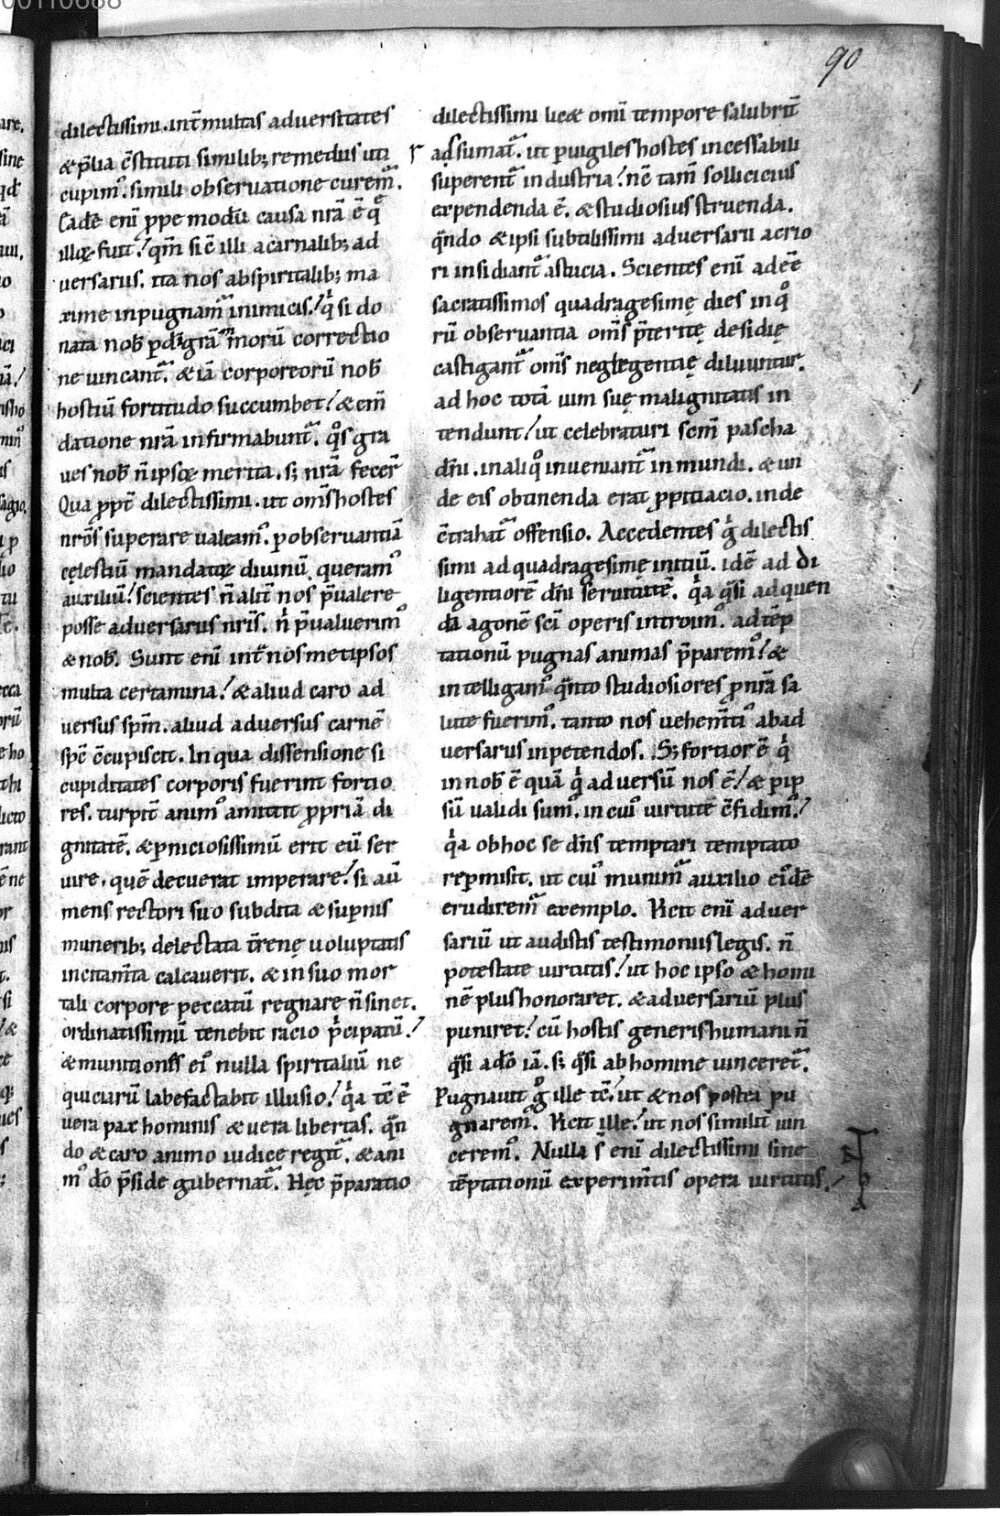 90
dilectissimi. int̄ multas adversitates
& p̄lia c̄stituti similib; remediis uti
cupim᷒. simili observatione curem᷒.
Eadē eni ꝓpe modū causa nr̄a ē q̄
illis fuit! qm̄ si c̄ illi a carnalib; ad
versariis. ita nos ab spiritalib; ma
xime inpugnam̄ inimicis! q̇ si do
nata nob̄ ꝑ dī grām morū correctio
ne uincant̄. & iā corporeorū nob̄
hostiū fortitudo succumbet! & em̄
datione nr̄a infirmabunt̄. q̇s gra
ves nob̄ n̄ ipsoꝝ merita. s; nr̄a fecer̄
Qua ꝓpt̄ dilectissimi. ut om̄s hostes
nr̄os superare ualeam᷒. ꝑ observantiā
cęlestiū mandatoꝝ divinū queram᷒
auxiliū! scientes n̄ alit̄ nos p̄ualere
posse adversariis nr̄is. n̄ p̄ualuerim᷒
& nob̄. Sunt eni int̄ nos metipsos
multa certamina! & aliud caro ad
versus spm̄. aliud adversus carnē
spc̄ c̄cupiscit. In qua dissensione si
cupiditates corporis fuerint fortio
res. turpit̄ anim᷒ amittit ꝓpriā di
gnitatē. & ꝑniciosissimū erit eū ser
uire. quē decuerat imperare! si aū
mens rectori suo subdita & suꝑnis
munerib; delectata t̄renę uoluptatis
incitam̄ta calcauerit. & in suo mor
tali corpore peccatū regnare n̄ sinet.
ordinatissimū tenebit racio p̄cipatū!
& munitionēs ei᷒ nulla spiritaliū ne
quiciarū labefactabit illusio! q̇a tc̄ ē
uera pax hominis & uera libertas. qn̄
do & caro animo iudice regit̄. & ani
m᷒ dō p̄side gubernat̄. Hęc p̄paratio
dilectissimi licet omi tempore salubrit̄
adsumat̄. ut ꝑuigiles hostes incessabili
superent̄ industria! nc̄ tam̄ sollicicius
expendenda ē. & studiosius struenda.
qn̄do & ipsi subtilissimi adversarii acrio
ri insidiant̄ astucia. Scientes eni adeē
sacratissimos quadragesimę dies in q̊
rū observantia om̄s p̄teritę desidię
castigant̄ om̄s neglegentię diluuntur.
ad hoc totā uim suę malignitatis in
tendunt! ut celebraturi scm̄ pascha
dn̄i. in aliq̊ inueniant̄ inmundi. & un
de eis obtinenda erat ꝓpitiacio. inde
c̄trahat̄ offensio. Accedentes g̊ dilectis
simi ad quadragesimę initiū. idē ad di
ligentiorē dn̄i seruitutē. q̇a q̇si ad quen
dā agonē sci operis introim᷒. ad tēp
tationū pugnas animas p̄parem᷒! &
intelligam᷒ q̄nto studiosiores ꝓ nr̄a sa
lute fuerim᷒. tanto nos uehem̄ti᷒ ab ad
versariis inpetendos. S; fortior ē q̇
in nob̄ ē quā q̇ adversū nos ē! & ꝑ ip
sū ualidi sum᷒. in cui᷒ uirtute c̄fidim᷒!
q̇a ob hoc se dn̄s temptari temptato
re ꝑmisit. ut cui᷒ munim̄ auxilio ei᷒dē
erudirem̄ exemplo. Vicit eni adver
sariū ut audistis testimoniis legis. n̄
potestate uirtutis! ut hoc ipso & homi
nē plus honoraret. & adversariū plus
puniret! cū hostis generis humani n̄
q̇si a dō iā. s; q̇si ab homine uinceret̄.
Pugnauit g̊ ille tc̄! ut & nos postea pu
gnarem᷒. Vicit ille! ut nos similit̄ uin
cerem᷒. Nulla s̄ eni dilectissimi sine
tēptationū experim̄tis opera uirtutis.